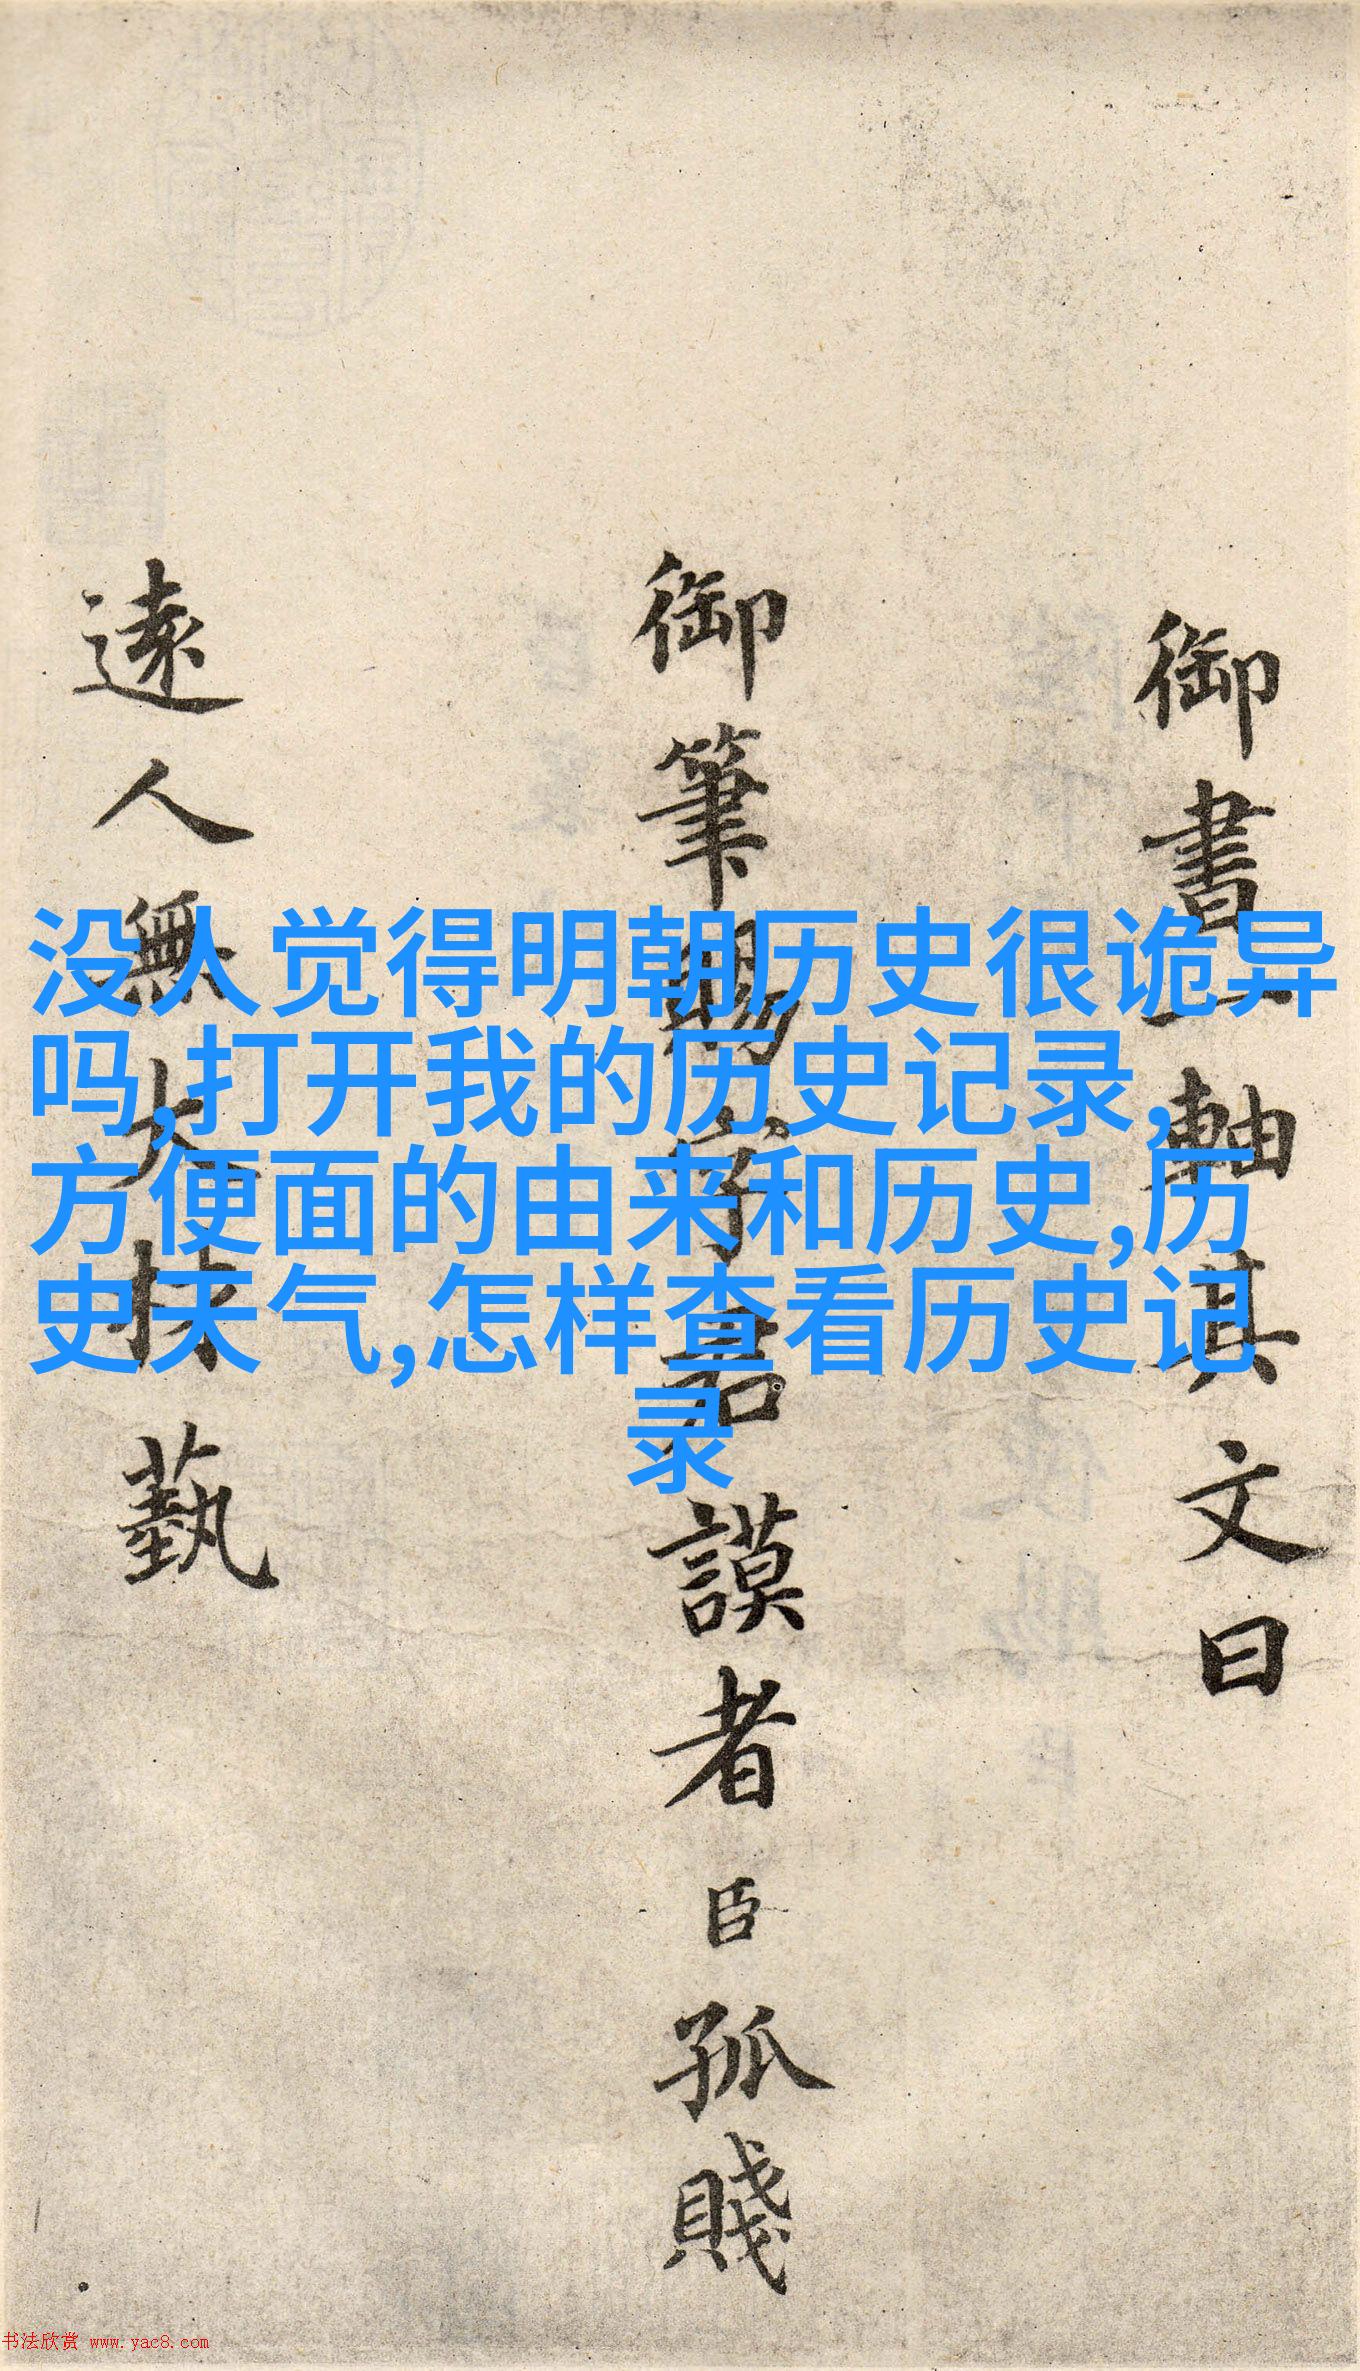 御書一軸其文曰
御筆賜字君謨者臣孤賤
遠人無大材藝
没人觉得明朝历史很诡异
吗,打开我的历史记录,
方便面的由来和历史,历
史天气,怎样查看历史记
录
书法欣赏 www.yac8.com